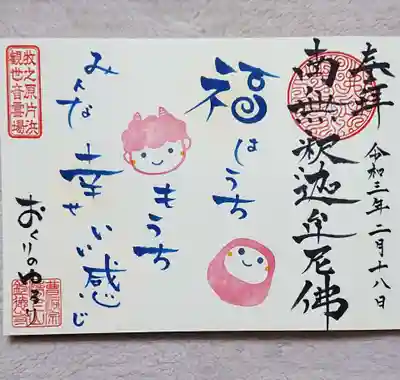 奉拝
令和三年二月十八日
南無釈迦牟尼佛
福はうち
もうち
みんな幸せいい感じ
牧之原片浜
観世音霊場
曹洞宗